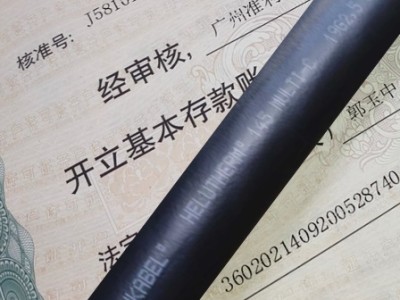 核准号: J5810
广州准利
经审核,
开立基本存款账
郭玉中
法定
3602021409200528740
KABEL® HELUTHERM® 145 MULTI-C 1962,5